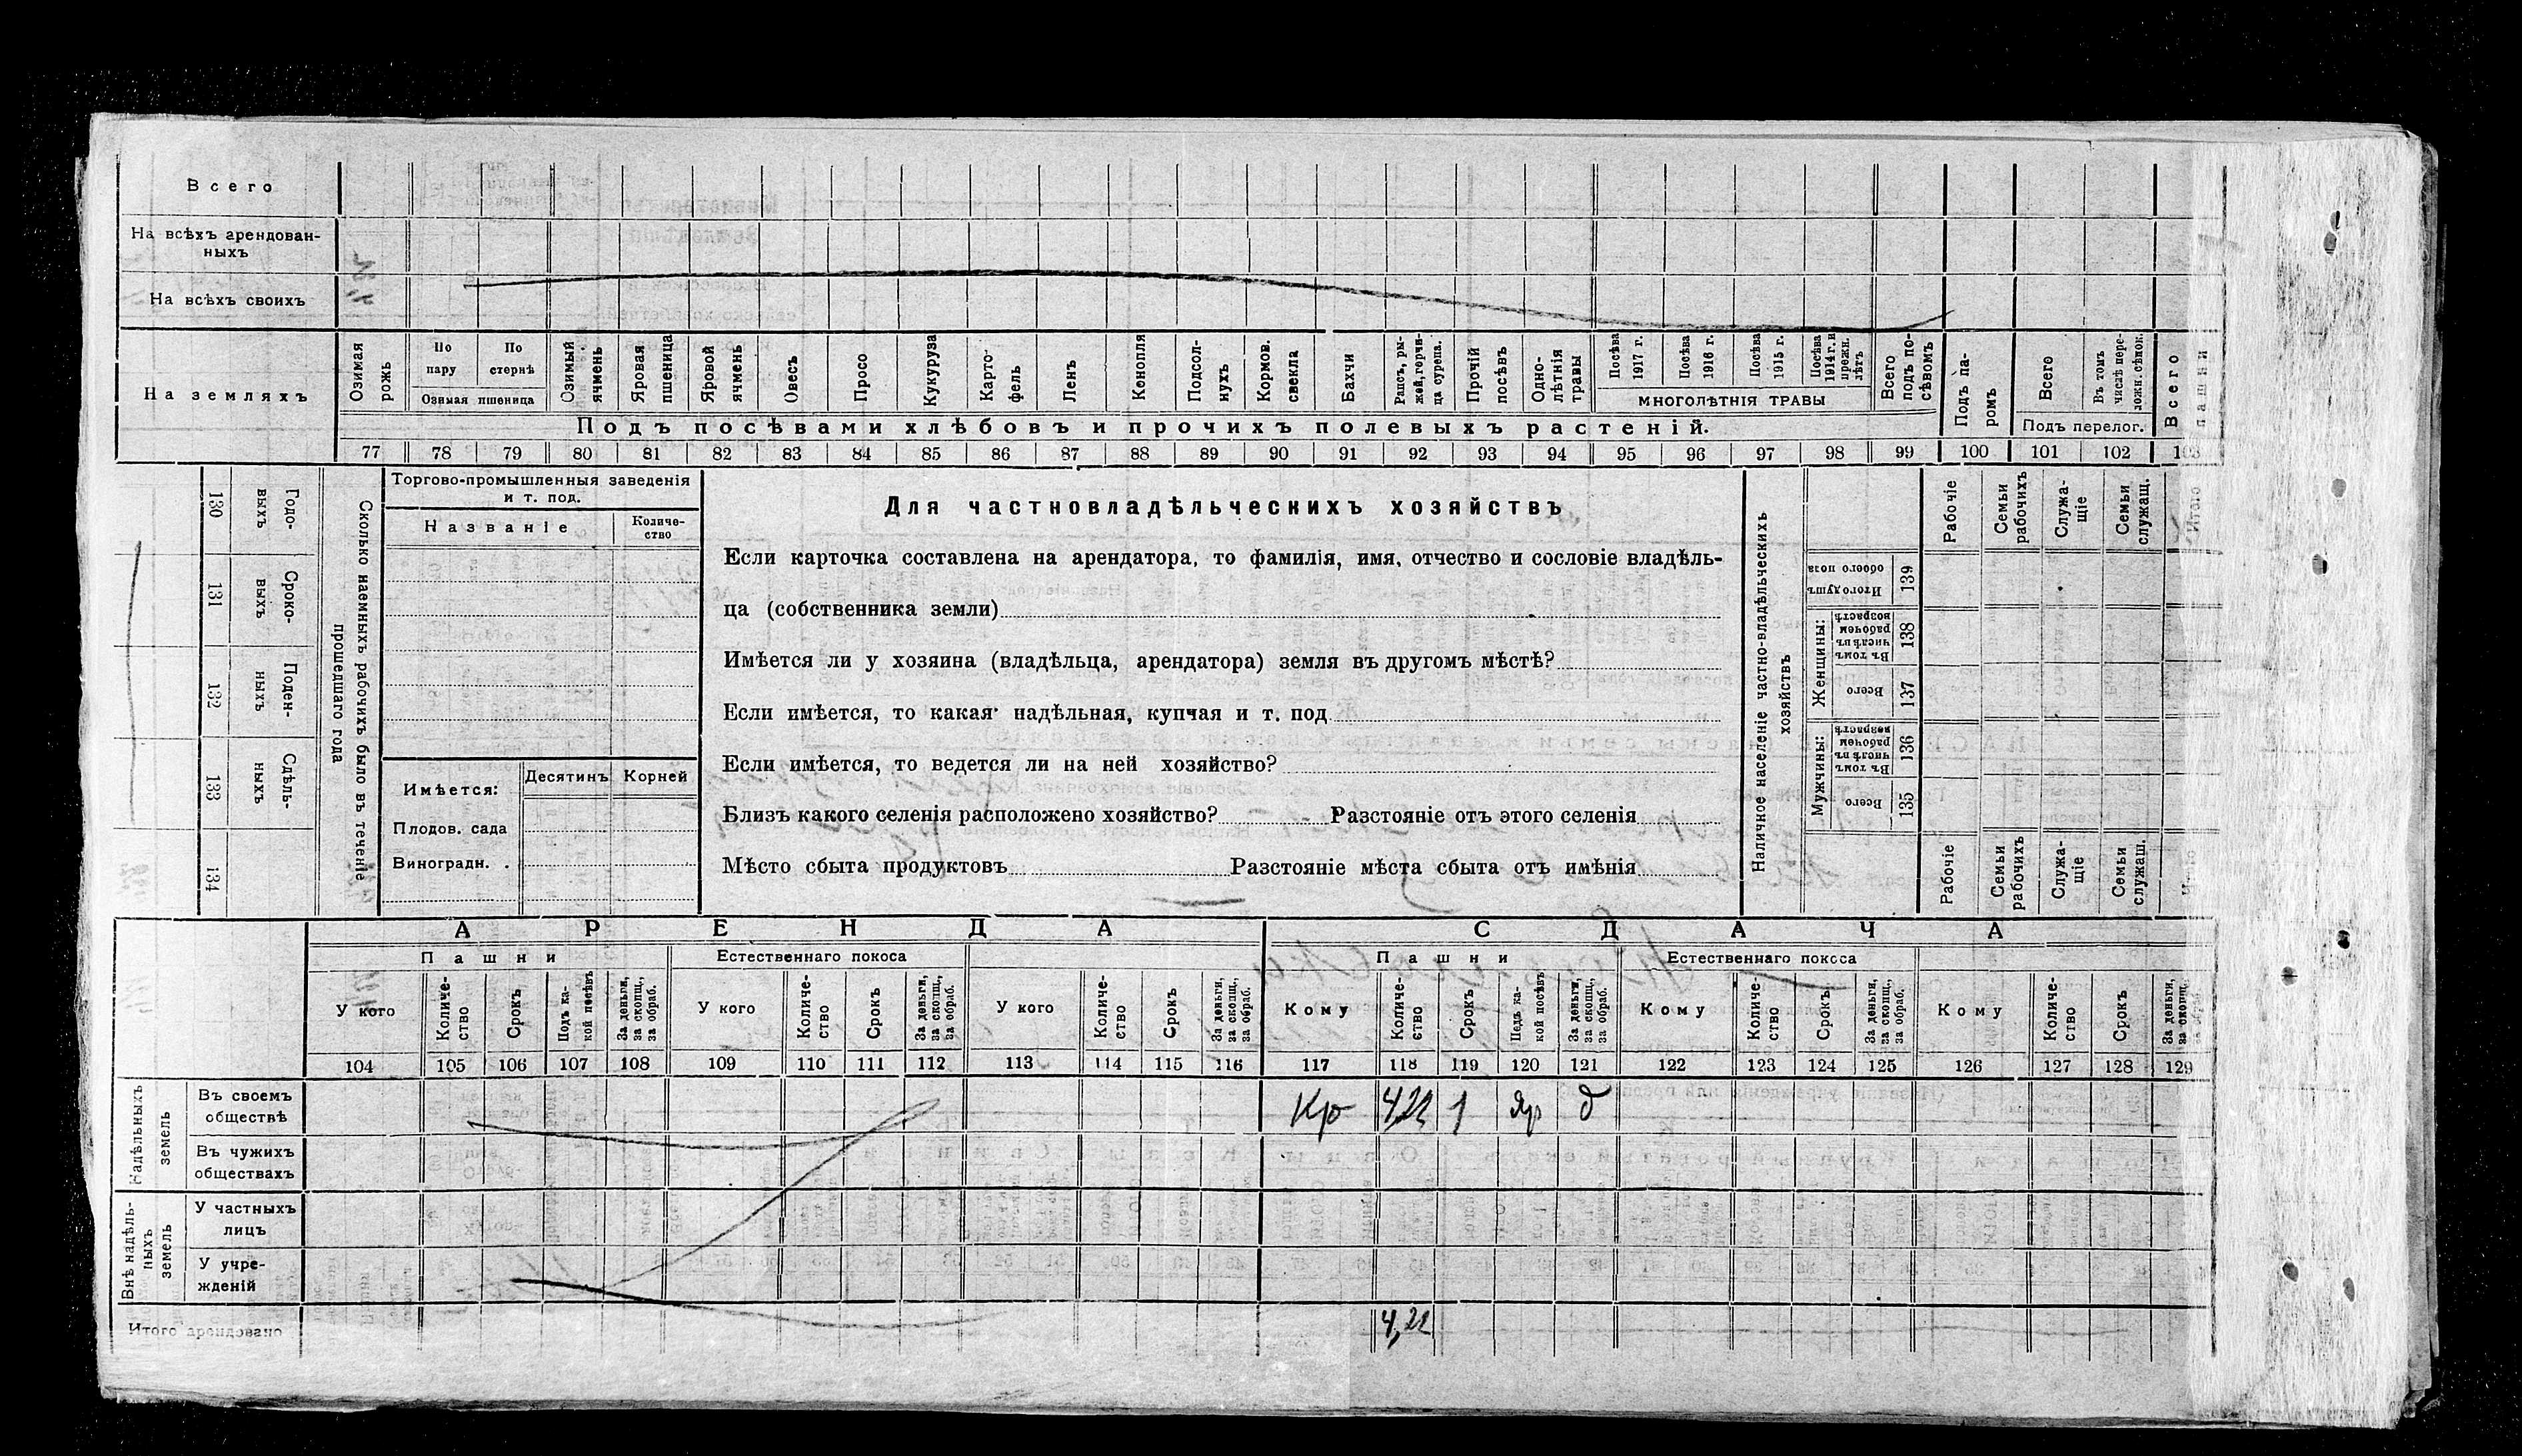 Всего
На всѣхъ арендован-
ныхъ
На всѣхъ своихъ
На земляхъ
Озимая рожь
По пару
По стернѣ
Озимая пшеница
Озимый ячмень
Яровая пшеница
Яровой ячмень
Овесъ
Просо
Кукуруза
Карто-
фель
Ленъ
Конопля
Подсол-
нухъ
Кормов. свекла
Бахчи
Рапсъ, ры-
жей, горчи-
ца сурепа.
Прочій посѣвъ
Одно-
лѣтнія травы
Посѣва 1917 г.
Посѣва 1916 г.
Посѣва 1915 г.
Посѣва 1914 г. и прежн. лѣтъ
МНОГОЛѢТНІЯ ТРАВЫ
Всего подъ по-
сѣвомъ
Подъ па-
ромъ
Всего
Въ томъ числѣ пере-
ложн. сѣнок.
Подъ перелог.
Всего пашни
Подъ посѣвами хлѣбовъ и прочихъ полевыхъ растеній.
77 78 79 80 81 82 83 84 85 86 87 88 89 90 91 92 93 94 95 96 97 98 99 100 101 102 103
130 Годо-
выхъ
131 Сроко-
выхъ
132 Поден-
ныхъ
133 Сдѣль-
ныхъ
134
Сколько наемныхъ рабочихъ было въ теченіе
прошедшаго года
Торгово-промышленныя заведенія
и т. под.
Названіе
Количе-
ство
Имѣется:
Десятинъ
Корней
Плодов. сада
Виноградн. .
Для частновладѣльческихъ хозяйствъ
Если карточка составлена на арендатора, то фамилія, имя, отчество и сословіе владѣль-
ца (собственника земли)
Имѣется ли у хозяина (владѣльца, арендатора) земля въ другомъ мѣстѣ?
Если имѣется, то какая надѣльная, купчая и т. под
Если имѣется, то ведется ли на ней хозяйство?
Близъ какого селенія расположено хозяйство? Разстояніе отъ этого селенія
Мѣсто сбыта продуктовъ Разстояніе мѣста сбыта отъ имѣнія
Наличное населеніе частно-владѣльческихъ
хозяйствъ
Рабочіе
Семьи рабочихъ
Служа-
щіе
Семьи служащ.
Итого
Итого душъ обоего пола 139
Женщины:
Въ томъ числѣ въ рабочем возрастѣ 138
Всего 137
Мужчины:
Въ томъ числѣ въ рабочем возрастѣ 136
Всего 135
Рабочіе
Семьи рабочихъ
Служа-
щіе
Семьи служащ.
АРЕНДА
СДАЧА
Пашни
Естественнаго покоса
Пашни
Естественнаго покоса
У кого
Количе-
ство
Срокъ
Подъ ка-
кой посѣвъ
За деньги, за скопщ., за обраб.
У кого
Количе-
ство
Срокъ
За деньги, за скопщ., за обраб.
У кого
Количе-
ство
Срокъ
За деньги, за скопщ., за обраб.
Кому
Количе-
ство
Срокъ
Подъ ка-
кой посѣвъ
За деньги, за скопщ., за обраб.
Кому
Количе-
ство
Срокъ
За деньги, за скопщ., за обраб.
Кому
Количе-
ство
Срокъ
За деньги, за скопщ.
104 105 106 107 108 109 110 111 112 113 114 115 116 117 118 119 120 121 122 123 124 125 126 127 128 129
Надѣльныхъ земель
Въ своемъ
обществѣ
Кр 4,22 1 Яр д
Въ чужихъ
обществахъ
Внѣ надѣль-
ныхъ земель
У частныхъ
лицъ
У учре-
жденій
Итого арендовано
4,22